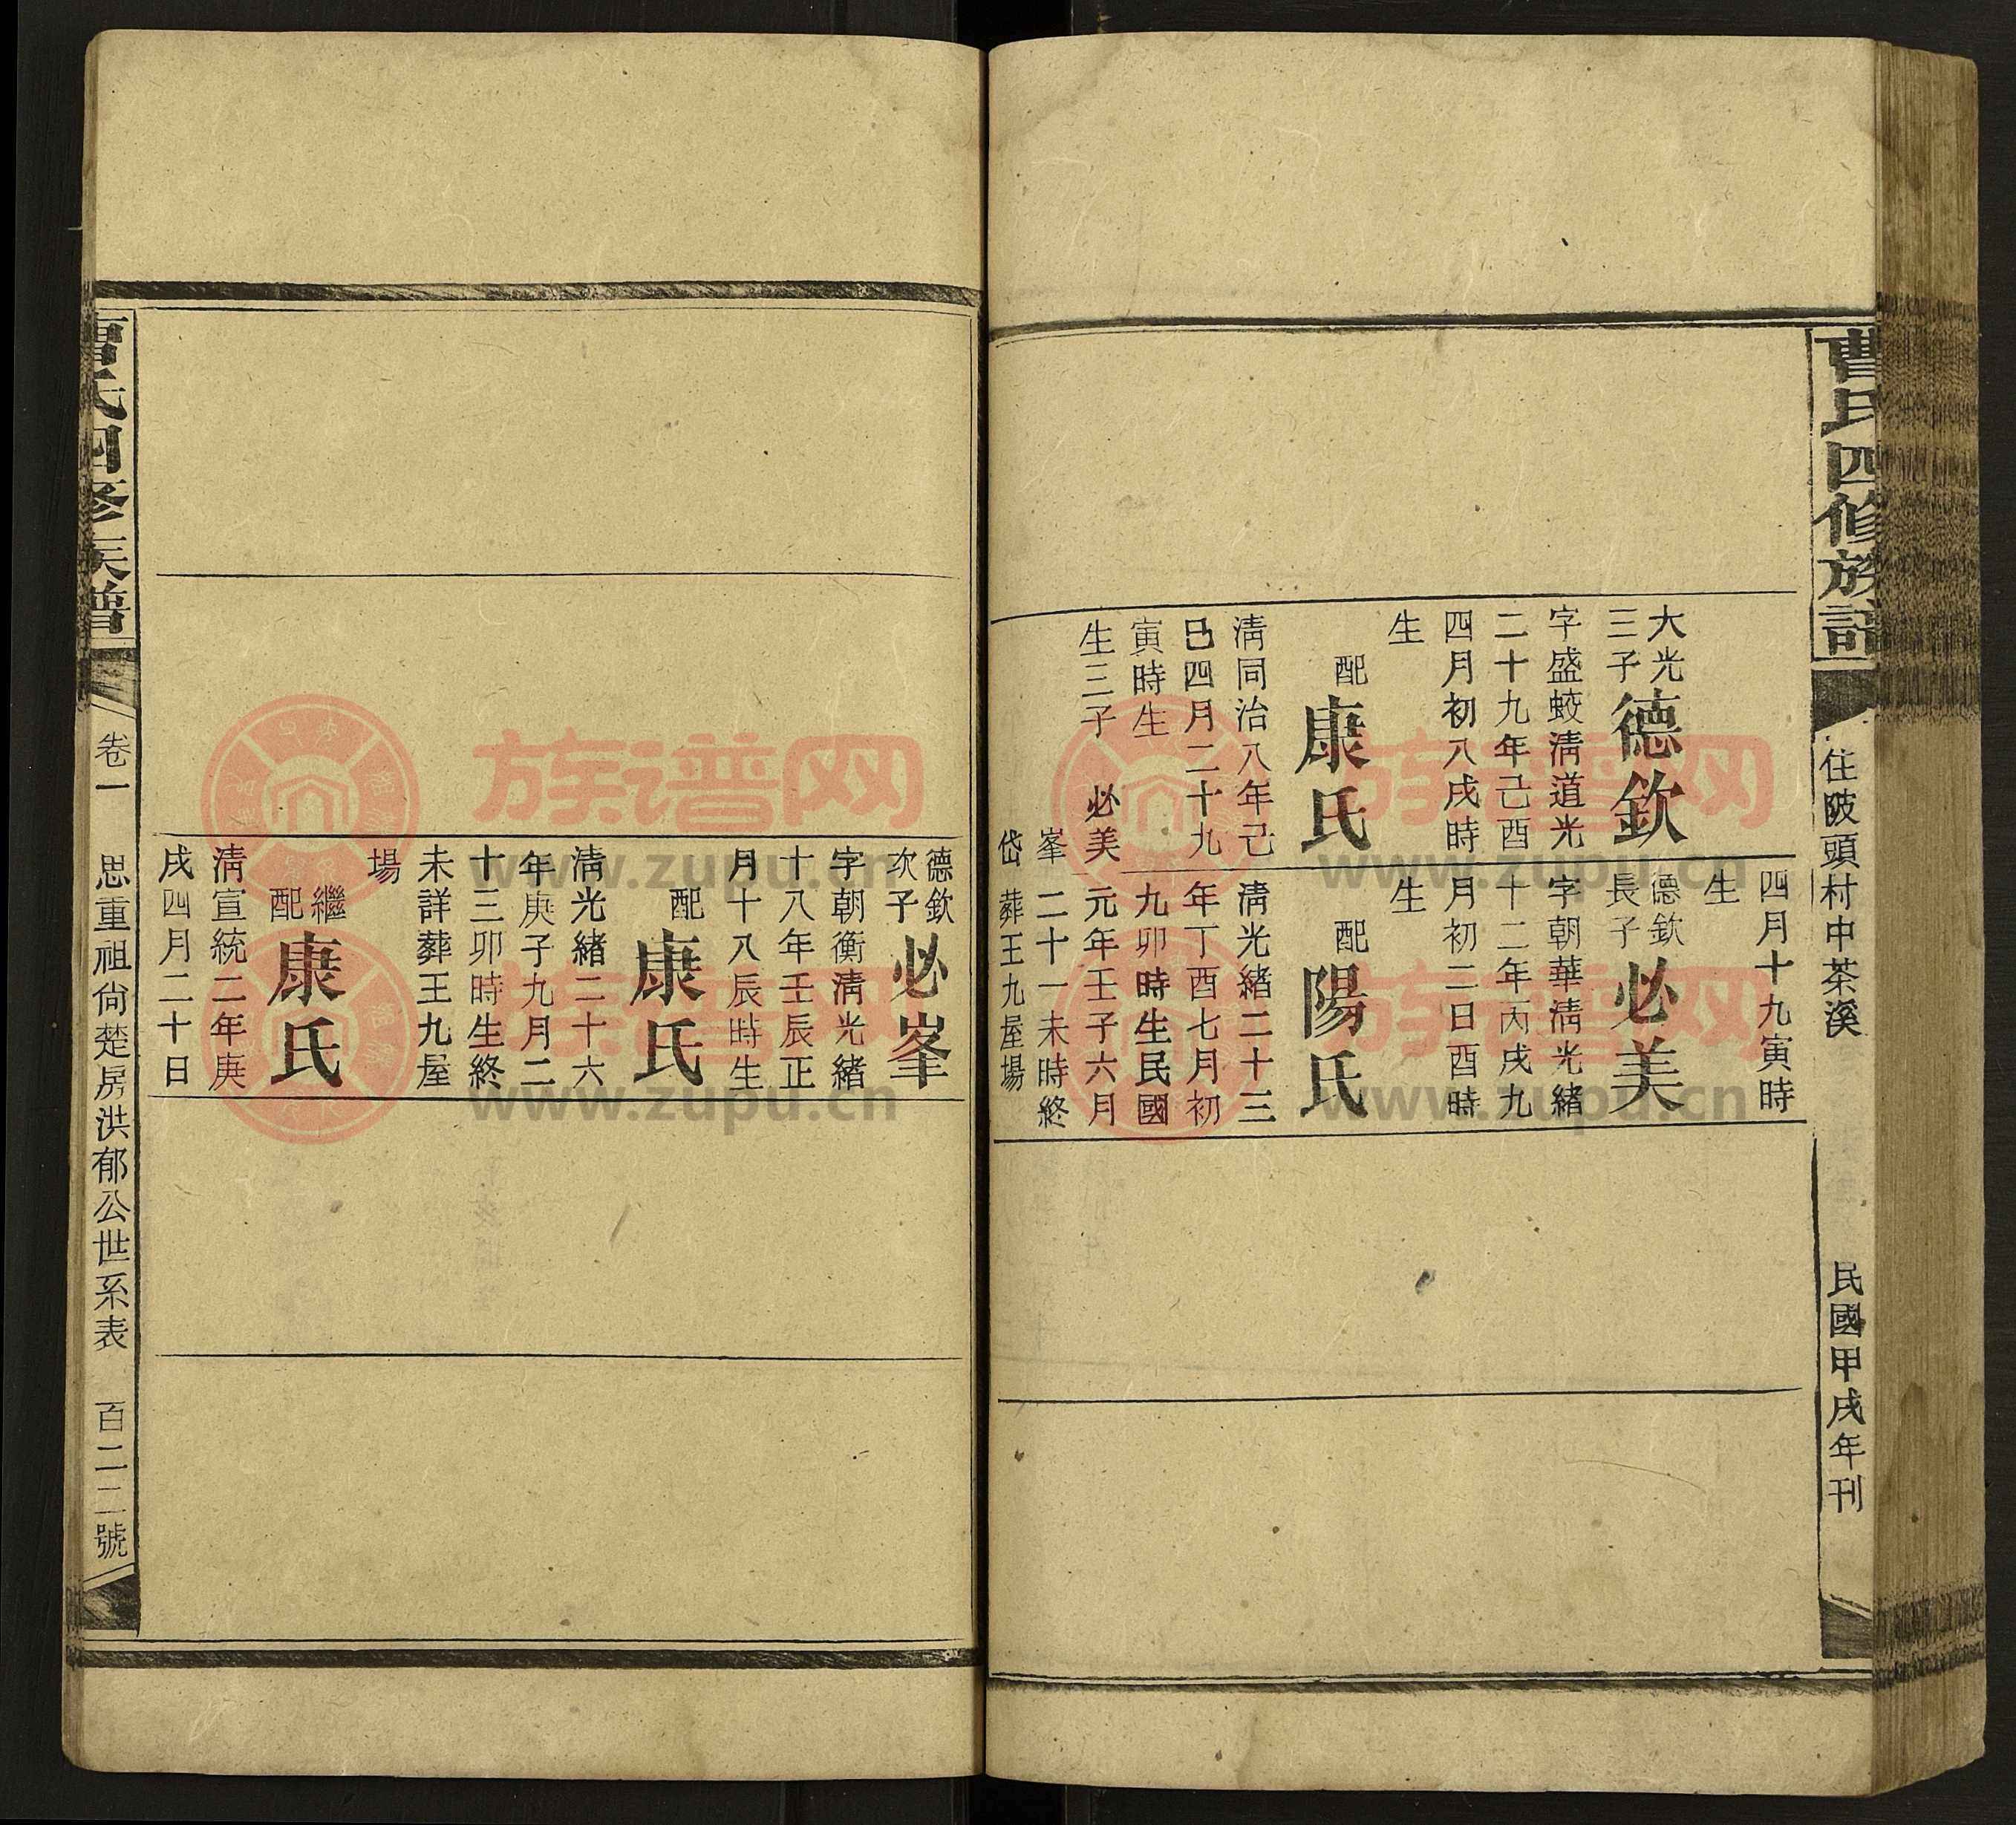 曹氏四修族譜
住陂頭村中茶溪
民國甲戌年刊
大光
三子
德欽
字盛蛟淸道光
二十九年己酉
四月初八戌時
生
配
康氏
淸同治八年己
巳四月二十九
寅時生
生三子 必美
峯
岱
四月十九寅時
生
德欽
長子
必美
字朝華淸光緒
十二年丙戌九
月初二日酉時
生
配
陽氏
淸光緒二十三
年丁酉七月初
九卯時生民國
元年壬子六月
二十一未時終
葬王九屋場
德欽
次子
必峯
字朝衡淸光緒
十八年壬辰正
月十八辰時生
配
康氏
淸光緒二十六
年庚子九月二
十三卯時生終
未詳葬王九屋
場
繼
配
康氏
淸宣統二年庚
戌四月二十日
曹氏四修族譜
卷一
思重祖尙楚房洪郁公世系表
百二二號
族谱网
www.zupu.cn
族谱网
www.zupu.cn
族谱网
www.zupu.cn
族谱网
www.zupu.cn